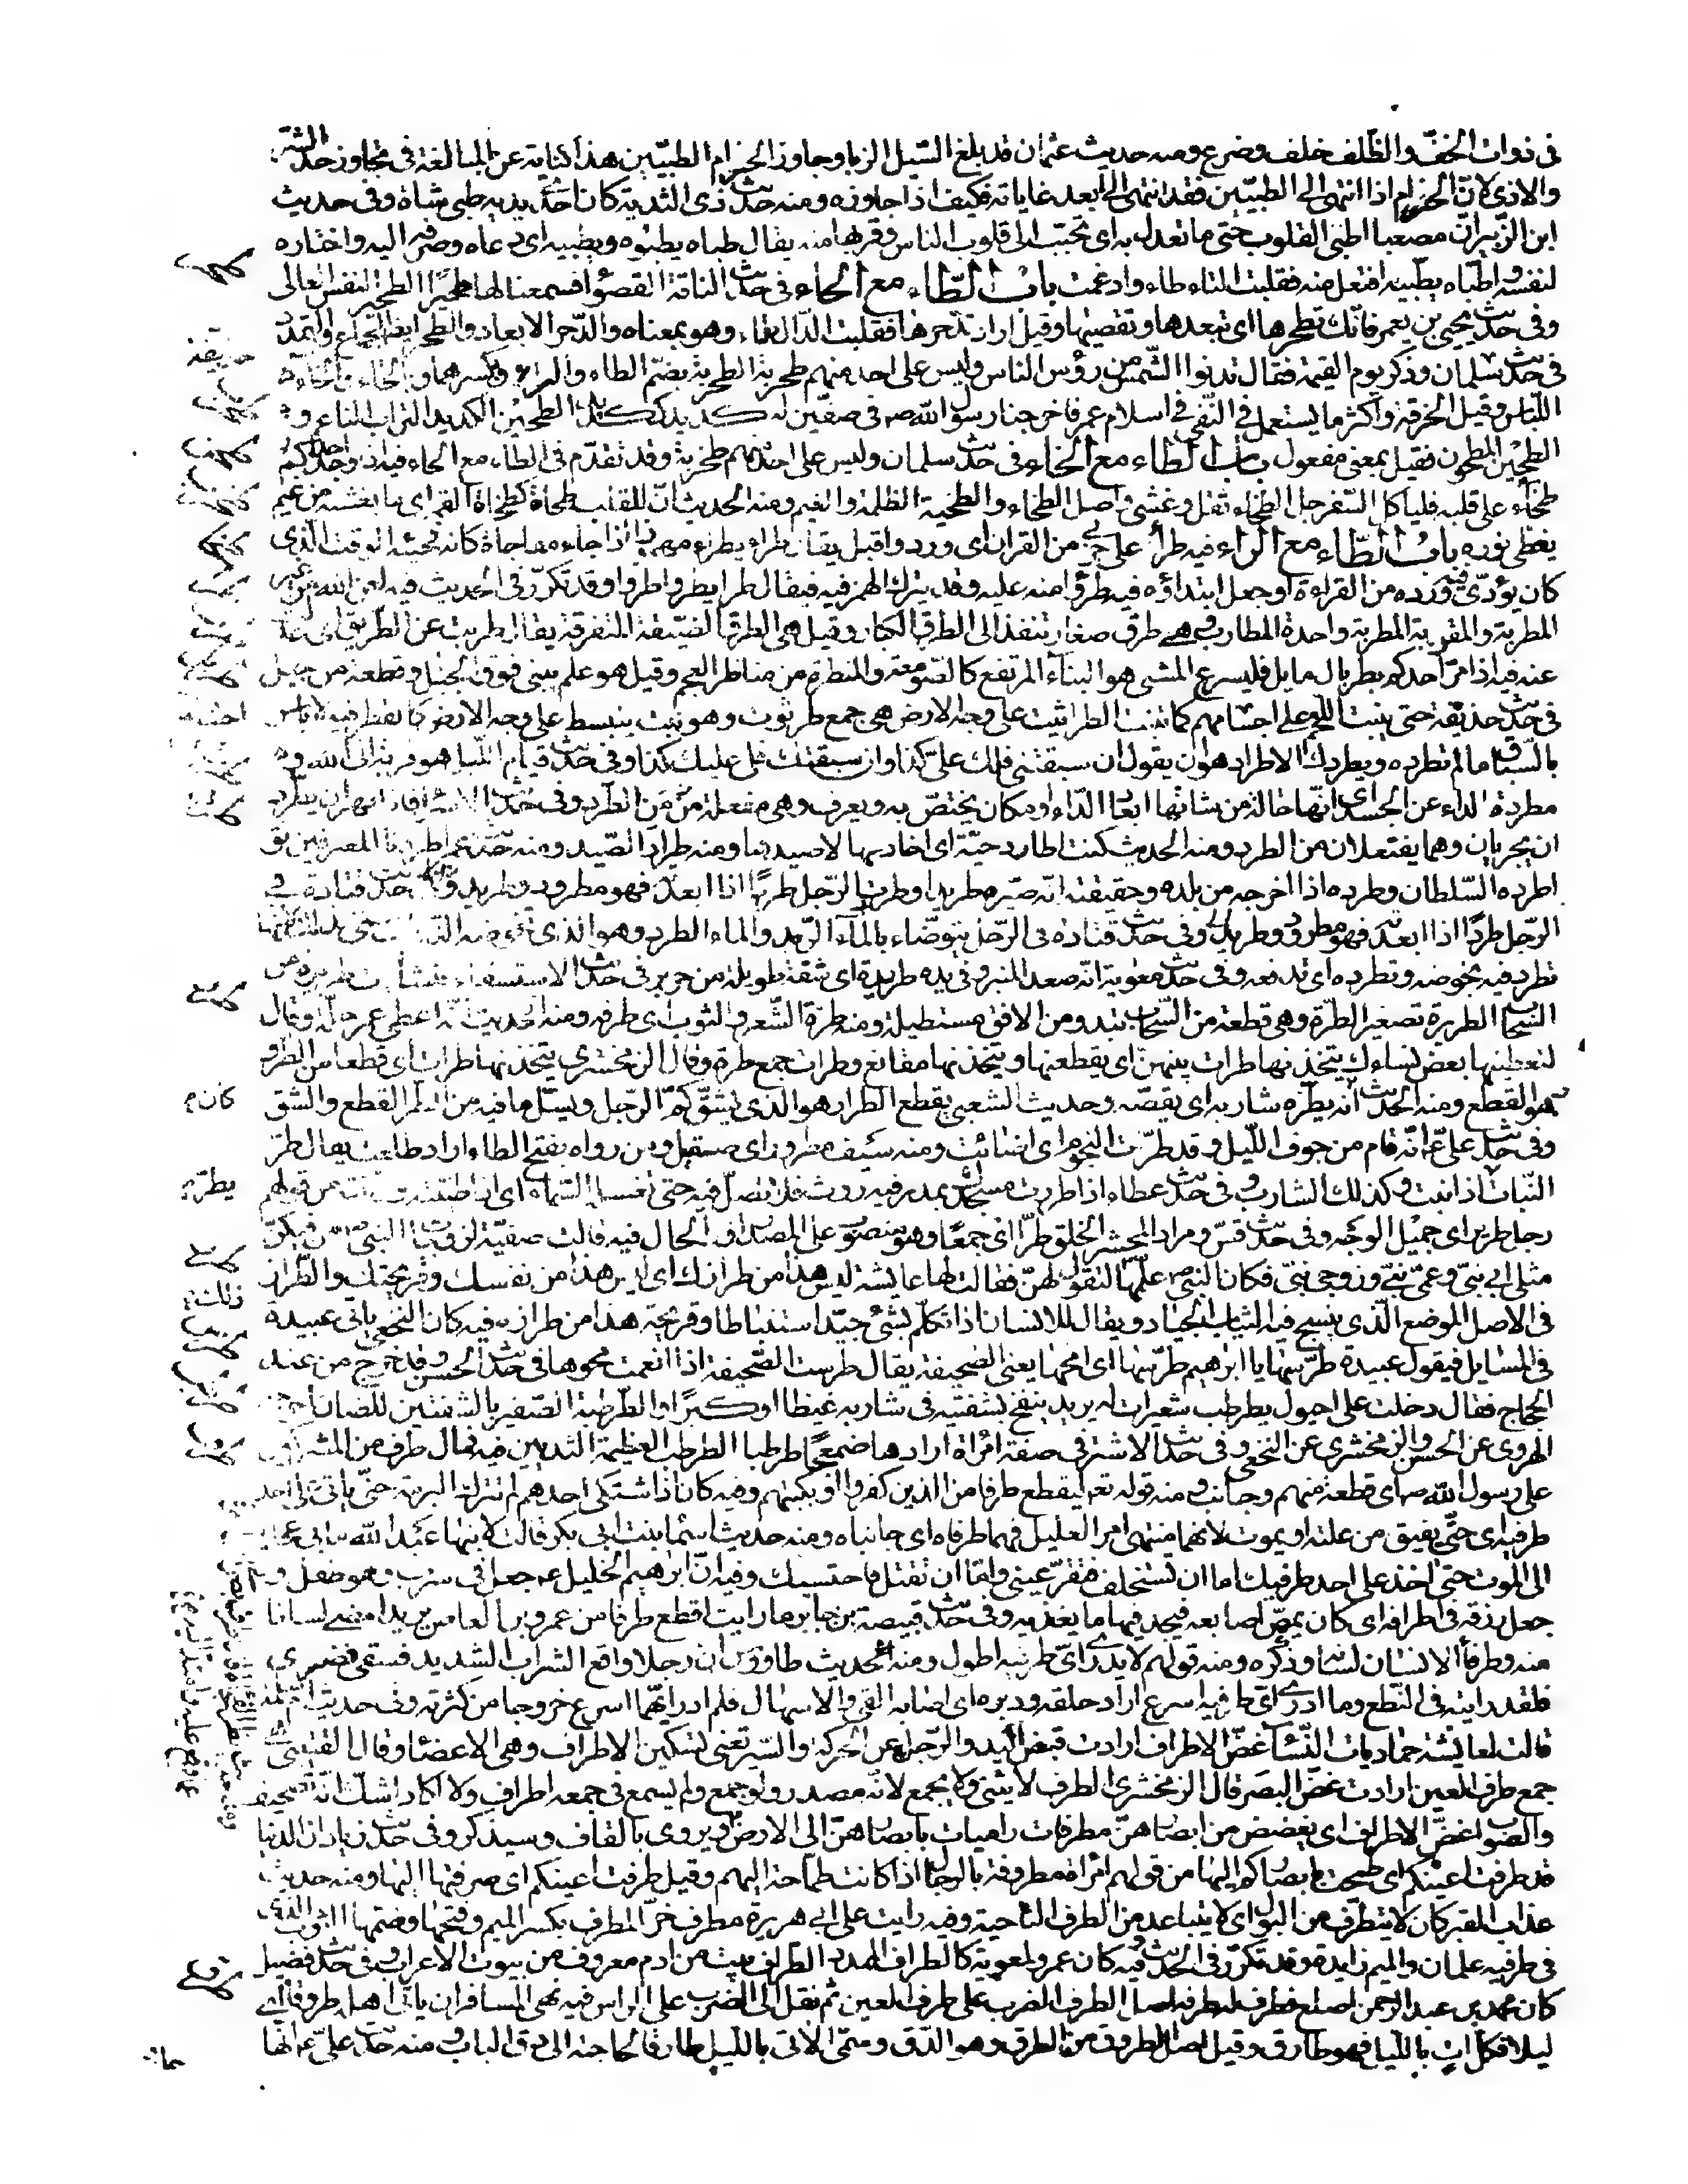 في ذوات الخف والظلف خلف وضرع ومنه حديث عثمان قد بلغ السيل الزبا وجاوز الحزام الطبيين هذا كناية عن المبالغة في تجاوز حد الشر
والاذى لان الحزام اذا انتهى الى الطبيين فقد انتهى الى ابعد غاياته فكيف اذا جاوزه ومنه حديث ذي الثدية كان احدى يديه طبي شاة وفي حديث
ابن الزبير ان مصعبا اطبى القلوب حتى ما تعدل به اى تحبب الى قلوب الناس وقربها منه يقال طباه يطبوه ويطبيه اى دعاه وصرفه اليه واختاره
لنفسه واطباه يطبيه افتعل منه فقلبت التاء طاء وادغمت باب الطاء مع الحاء في حديث الناقة القصوا فسمعنا لها طحيرا الطحير النفس العالى
وفي حديث يحيى بن يعمر فانك تطحرها اى تبعدها وتقصيها وقيل اراد تدحرها فقلبت الدال طاء وهو بمعناه والدحر الابعاد والطحر ايضا الجماع والتمدد
في حديث سلمان وذكر يوم القيمة فقال تدنوا الشمس من رؤس الناس وليس على احد منهم طحربة الطحربة بضم الطاء والراء وكسرهما وبالحاء والخاء
اللباس وقيل الخرقة واكثر ما يستعمل في النفي في اسلام عمر فاخرجنا رسول الله ص في صفين له كديد ككديد الطحين الكديد التراب الناعم و
الطحين المطحون فعيل بمعنى مفعول باب الطاء مع الخاء في حديث سلمان وليس على احد منهم طخربة وقد تقدم في الطاء مع الحاء فيه اذا وجد احدكم
طخاء على قلبه فليأكل السفرجل الطخاء ثقل وغشى واصل الطخاء والطخية الظلمة والغيم ومنه الحديث ان للقلب طخاة كطخاة القمر اى ما يغشيه من غيم
يغطى نوره باب الطاء مع الراء فيه طرأ على حزبي من القرآن اى ورد واقبل يقال طرأ يطرؤ مهموزا اذا جاء مفاجاة كانه فجئه الوقت الذى
كان يؤدى فيه ورده من القراءة او جعل ابتداؤه فيه طرؤا منه عليه وقد يترك الهمز فيه فيقال طرا يطرو طروا وقد تكرر في الحديث فيه لعن الله من غير
المطربة والمقربة المطربة واحدة المطارب وهي طرق صغار تنفذ الى الطرق الكبار وقيل هي الطرق الضيقة المتفرقة يقال طربت عن الطريق اى عدلت
عنه فيه اذا مر احدكم بطربال مايل فليسرع المشى هو البناء المرتفع كالصومعة والمنظرة من مناظر العجم وقيل هو علم يبنى فوق الجبل او قطعة من جبل
في حديث حذيفة حتى ينبت اللحم على اجسامهم كما تنبت الطراثيث على وجه الارض هي جمع طرثوث وهو نبت ينبسط على وجه الارض كالفطر فيه لا باس
بالسباق ما لم تطرده ويطردك الاطراد هو ان يقول ان سبقتني فلك على كذا وان سبقتك فلى عليك كذا وفي حديث قيام الليل هو قربة الى الله و
مطردة الداء عن الجسد اى انها حالة من شانها ابعاد الداء او مكان يختص به ويعرف وهي مفعلة من الطرد وفي حديث الاسراء فاذا نهران يطردان
ان يجريان وهما يفتعلان من الطرد ومنه الحديث كنت اطارد حية اى اخادعها لاصيدها ومنه طراد الصيد ومنه حديث عمر اطردنا المعترفين يق
اطرده السلطان وطرده اذا اخرجه من بلده وحقيقته انه صيره طريدا وطردت الرجل طردا اذا ابعدته فهو مطرود وطريد وفي حديث قتادة في
الرجل طردا اذا ابعدته فهو مطرود وطريد وفي حديث قتادة في الرجل يتوضاء بالماء الرمد والماء الطرد وهو الذى تخوضه الدواب
تطرد فيه بخوضه وتطرده اى تدفعه وفي حديث معوية انه صعد المنبر وفي يده طريدة اى شقة طويلة من حرير في حديث الاستسقاء فنشأت طريرة من
السحاب الطريرة تصغير الطرة وهي قطعة من السحاب تبدو من الافق مستطيلة ومنه طرة الشعر والثوب اى طرفه ومنه الحديث انه اعطى عمر حلة وقال
لتعطينها بعض نساءك يتخذنها طرات بينهن اى يقطعنها ويتخذنها مقانع وطرات جمع طرة وقال الزمخشرى يتخذنها طرات اى قطعا من الطر و
هو القطع ومنه الحديث انه يطر شاربه اى يقصه وحديث الشعبي يقطع الطرار هو الذى يشق كم الرجل ويسل ما فيه من الطر القطع والشق
وفي حديث على ع انه قام من جوف الليل وقد طرت النجوم اى اضائت ومنه سيف مطرور اى صقيل ومن رواه بفتح الطاء اراد طلعت يقال طر
النبات اذا نبت وكذلك الشارب وفي حديث عطاء اذا طررت مسجدك بمدر فيه روث فلا تصل فيه حتى تغسله السماء اى اذا طينته وزينته من قولهم
رجل طرير اى جميل الوجه وفي حديث قس ومراد المحشر الخلق طرا اى جمعا وهو منصوب على المصدر او الحال فيه قالت صفية لزوجات النبي ص من فيكن
مثلى ابى نبي وعمى نبي وزوجى نبي فكان النبي ص علمها لتقول لهن فقالت لها عايشة ليس هذا من طرازك اى ليس هذا من نفسك وقريحتك والطراز
في الاصل الموضع الذى ينسج فيه الثياب الجياد ويقال للانسان اذا تكلم بشئ جيد استنباطا وقريحة هذا من طرازه فيه كان النخعي ياتى عبيدة
في المسايل فيقول عبيدة طرسها يا ابرهيم طرسها اى امحها يعنى الصحيفة يقال طرست الصحيفة اذا انعمت محوها في حديث الحسن وقد خرج من عند
الحجاج فقال دخلت على احيول يطرطب شعيرات له يريد ينفخ بشفتيه في شاربه غيظا او كبرا والطرطبة الصفير بالشفتين للضان اخرجه
الهروى عن الحسن والزمخشرى عن النخعي وفي حديث الاشتر في صفة امراة ارادها ضمعجا طرطبا الطرطب العظيمة الثديين فيه فمال طرف من المشركين
على رسول الله ص اى قطعة منهم وجانب ومنه قوله تع ليقطع طرفا من الذين كفروا او يكبتهم وفيه كان اذا اشتكى احدهم لم تنزل البرمة حتى ياتى على احد
طرفيه اى حتى يفيق من علته او يموت لانهما منتهى امر العليل فهما طرفاه اى جانباه ومنه حديث اسما بنت ابى بكر قالت لابنها عبد الله ما بي عجلة
الى الموت حتى اخذ على احد طرفيك اما ان تستخلف فتقر عيني واما ان تقتل فاحتسبك وفيه ان ابرهيم الخليل ع جعل في سرب وهو طفل و
جعل رزقه في اطرافه اى كان يمص اصابعه فيجد فيها ما يغذيه وفي حديث قبيصة بن جابر ما رايت اقطع طرفا من عمرو بن العاص يريد امضى لسانا
منه وطرفا الانسان لسانه وذكره ومنه قولهم لا يدرى اى طرفيه اطول ومنه الحديث طاووس ان رجلا واقع الشراب الشديد فسقى فضرى
فلقد رايته في النطع وما ادرى اى طرفيه اسرع اراد حلقه ودبره اى اصابه القي والاسهال فلم ادر ايهما اسرع خروجا من كثرته وفي حديث ام سلمة
قالت لعايشة حماديات النساء غض الاطراف ارادت قبض اليد والرجل عن الحركة والسير تعنى تسكين الاطراف وهي الاعضا وقال القتيبي هي
جمع طرف العين ارادت غض البصر قال الزمخشرى الطرف لا يثنى ولا يجمع لانه مصدر ولو جمع ولم يسمع في جمعه اطراف ولا اكاد اشك انه تصحيف
والصواب غض الاطراق اى يغضضن من ابصارهن مطرقات راميات بابصارهن الى الارض ويروى بالقاف وسيذكر وفي حديث زياد ان الدنيا
قد طرفت اعينكم اى طمحت بابصاركم اليها من قولهم امراة مطروفة بالرجال اذا كانت طماحة اليهم وقيل طرفت اعينكم اى صرفتها اليها ومنه حديث
عذاب القبر كان لا يتطرف من البول اى لا يتباعد من الطرف الناحية وفيه رايت على ابى هريرة مطرف خز المطرف بكسر الميم وفتحها وضمها الثوب الذى
في طرفيه علمان والميم زايدة وقد تكرر في الحديث وفيه كان عمرو لمعوية كالطراف الممدد الطراف بيت من ادم معروف من بيوت الاعراب وفي حديث فضيل
كان محمد بن عبد الرحمن اصلع فطرف له طرفة اصل الطرف الضرب على طرف العين ثم نقل الى الضرب على الراس فيه نهى المسافر ان ياتى اهله طروقا اى
ليلا وكل ات بالليل فهو طارق وقيل اصل الطروق من الطرق وهو الدق وسمى الاتى بالليل طارقا لحاجته الى دق الباب ومنه حديث على ع انها